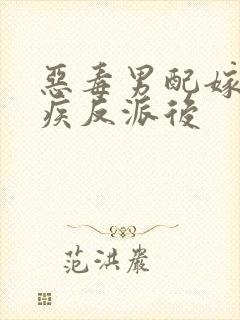 惡毒男配嫁
疾反派後
范洪巖